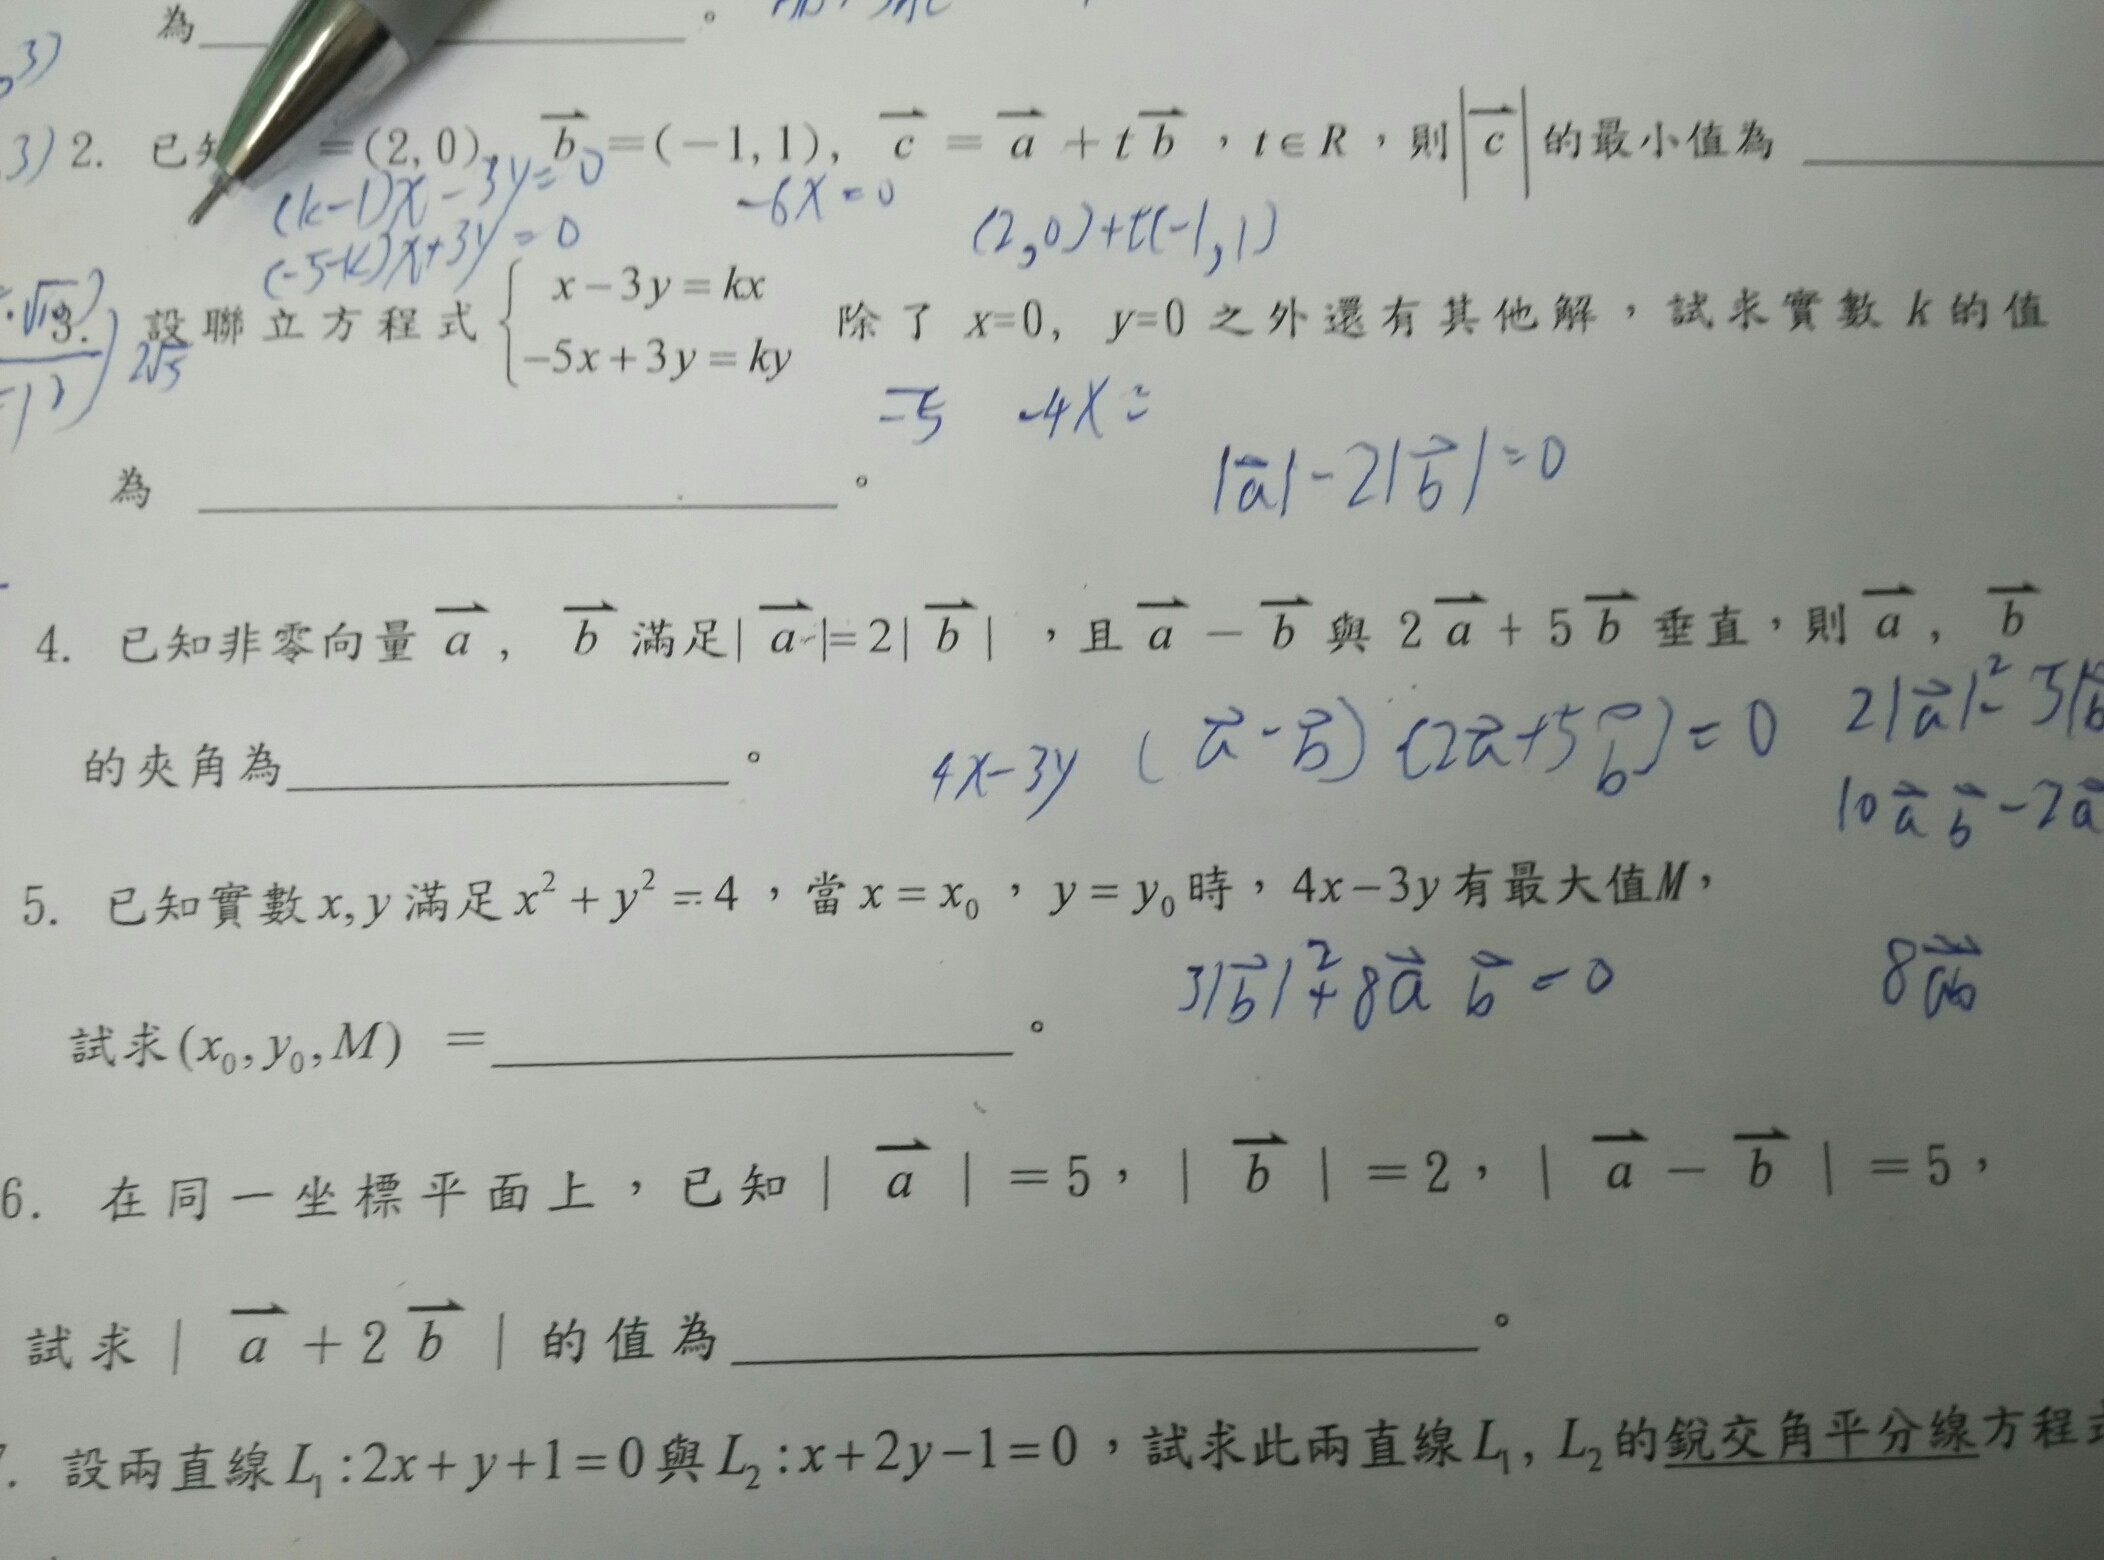 為 。
,3)
3) 2. 已知 =(2,0), b⃗ =(−1,1), c⃗ = a⃗ + t b⃗ ,t∈R,則|c⃗|的最小值為
(k-1)x-3y=0 -6x=0 (2,0)+t(-1,1)
(-5-k)x+3y=0
3. 設聯立方程式 { x−3y=kx
−5x+3y=ky 除了 x=0, y=0 之外還有其他解,試求實數 k 的值
2√5
=5 -4x=
|a⃗|-2|b⃗|=0
為 。
4. 已知非零向量 a⃗ , b⃗ 滿足| a⃗ |=2| b⃗ | ,且 a⃗ − b⃗ 與 2 a⃗ + 5 b⃗ 垂直,則 a⃗ , b⃗
的夾角為 。
4x-3y (a⃗-b⃗)(2a⃗+5b⃗)=0 2|a⃗|²-3|b⃗
10a⃗ b⃗-2a⃗
5. 已知實數 x,y 滿足 x²+y²=4,當 x=x₀,y=y₀ 時,4x−3y 有最大值M,
3|b⃗|²+8a⃗ b⃗=0 8a⃗b⃗
試求(x₀,y₀,M) = 。
6. 在同一坐標平面上,已知| a⃗ |=5,| b⃗ |=2,| a⃗ − b⃗ |=5,
試求| a⃗ +2 b⃗ |的值為 。
. 設兩直線 L₁:2x+y+1=0 與 L₂:x+2y−1=0,試求此兩直線 L₁, L₂ 的銳交角平分線方程式